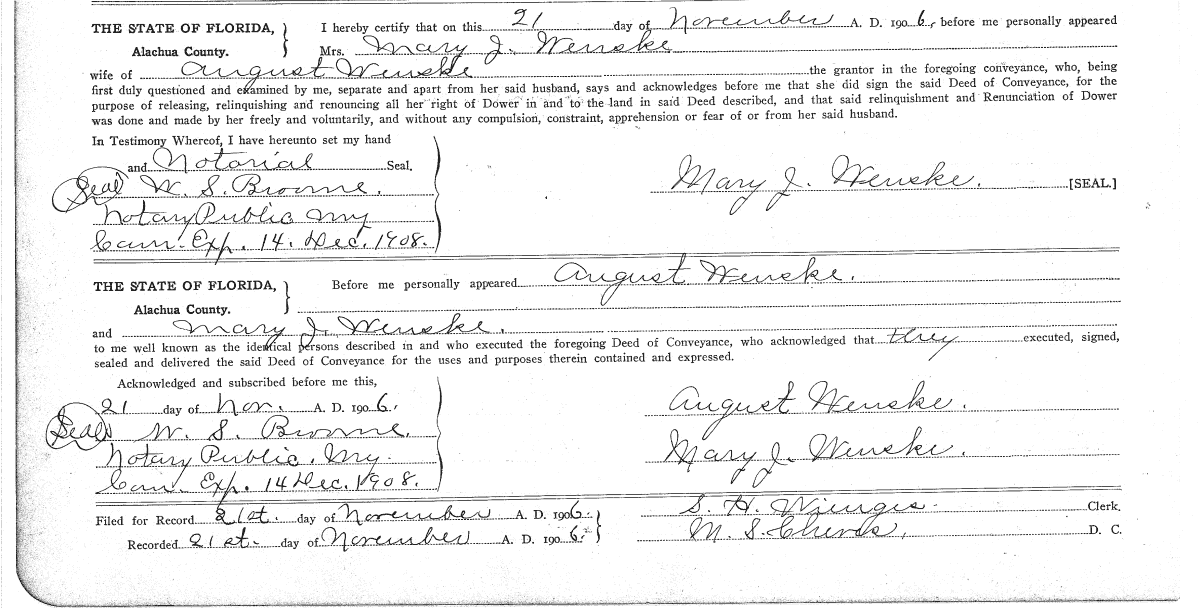 THE STATE OF FLORIDA, I hereby certify that on this 21 day of November A. D. 1906, before me personally appeared
Alachua County. Mrs. Mary J. Wenske
wife of August Wenske the grantor in the foregoing conveyance, who, being
first duly questioned and examined by me, separate and apart from her said husband, says and acknowledges before me that she did sign the said Deed of Conveyance, for the
purpose of releasing, relinquishing and renouncing all her right of Dower in and to the land in said Deed described, and that said relinquishment and Renunciation of Dower
was done and made by her freely and voluntarily, and without any compulsion, constraint, apprehension or fear of or from her said husband.
In Testimony Whereof, I have hereunto set my hand
and Notarial Seal.
Seal W. S. Broome.
Mary J. Wenske. [SEAL.]
Notary Public My
Com. Exp. 14. Dec. 1908.
THE STATE OF FLORIDA, Before me personally appeared August Wenske.
Alachua County.
and Mary J. Wenske.
to me well known as the identical persons described in and who executed the foregoing Deed of Conveyance, who acknowledged that they executed, signed,
sealed and delivered the said Deed of Conveyance for the uses and purposes therein contained and expressed.
Acknowledged and subscribed before me this,
21 day of Nov. A. D. 1906.
August Wenske.
Seal W. S. Broome.
Mary J. Wenske.
Notary Public. My
Com. Exp. 14 Dec. 1908.
Filed for Record 21st. day of November A. D. 1906 S. H. Wienges. Clerk.
Recorded 21st. day of November A. D. 1906. M. S. D. C.